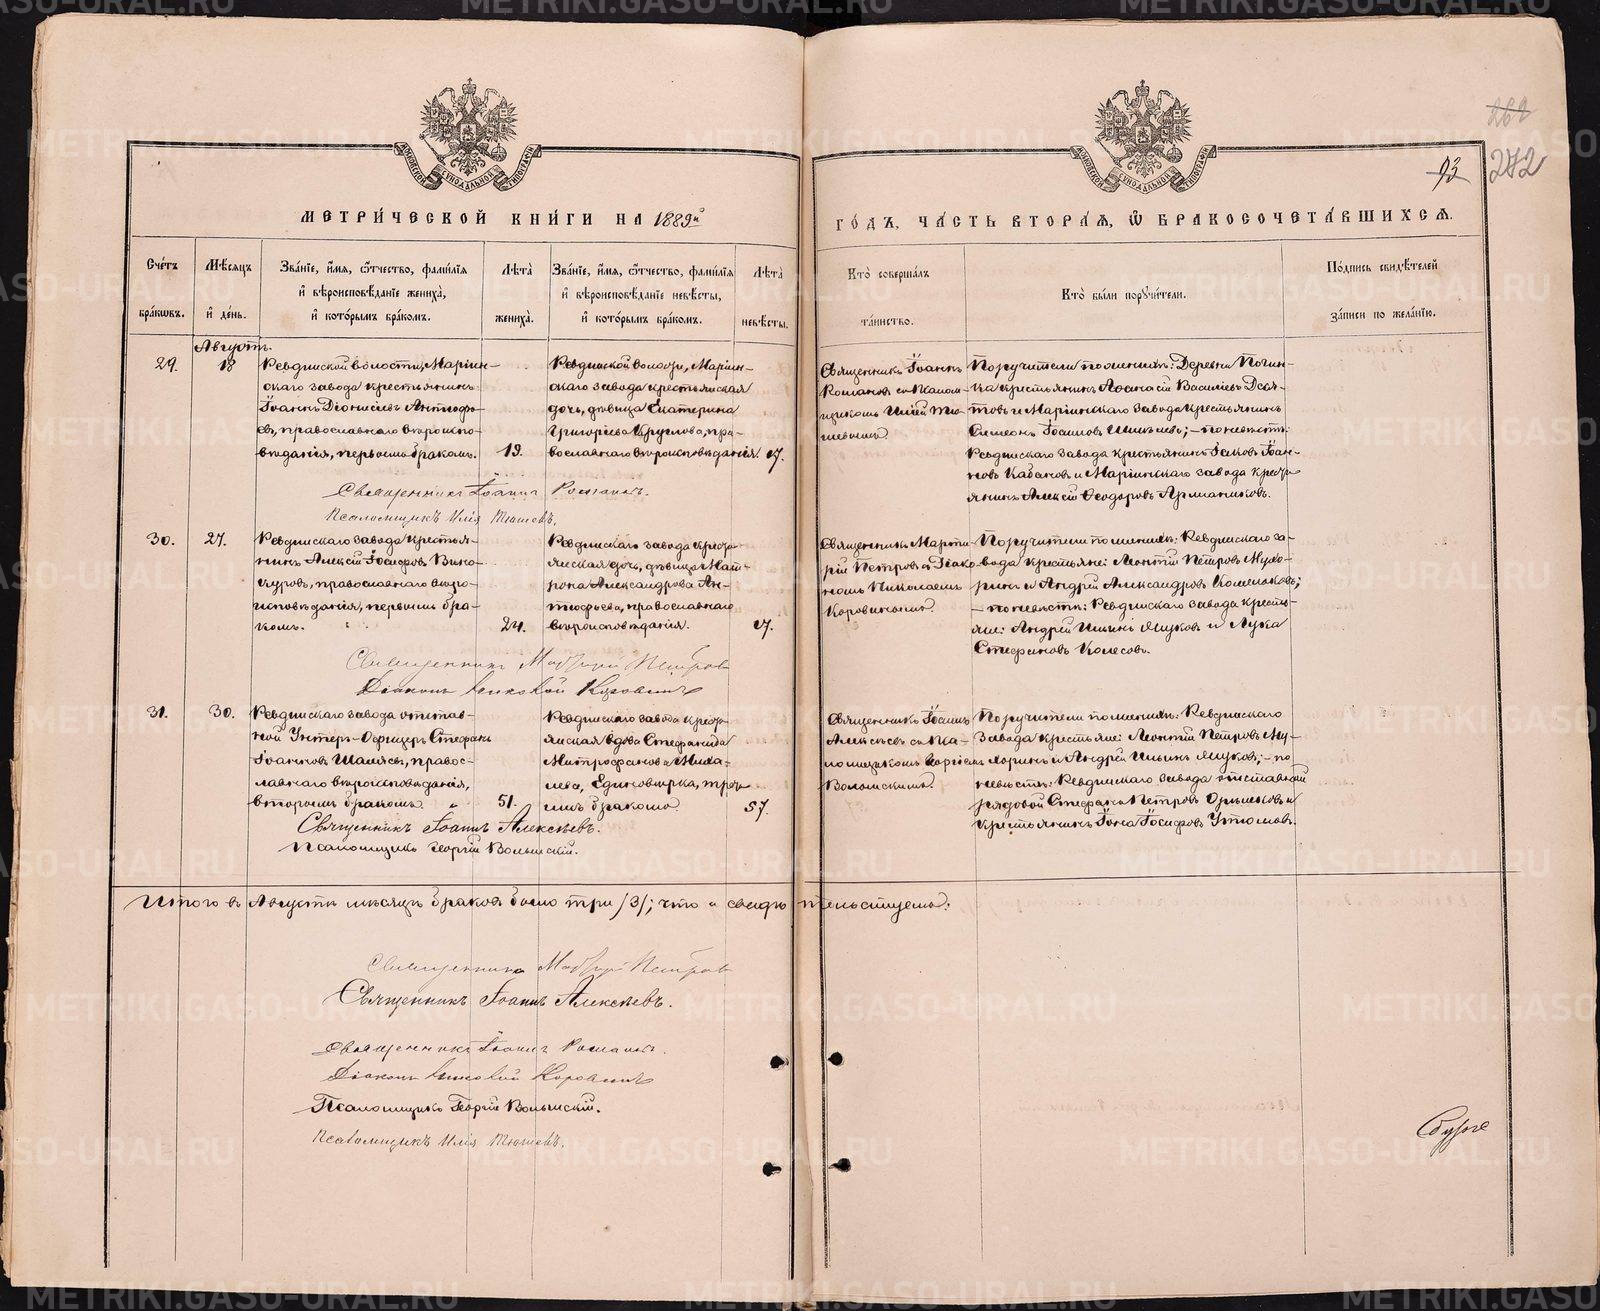 МЕТРИ́ЧЕСКОЙ КНИ́ГИ НА 1889й
ГО́ДЪ, ЧА́СТЬ ВТОРА́Я, Ѽ БРАКОСОЧЕТА́ВШИХСЯ.
93
262
272
Сче́тъ бра́кωвъ.
Мѣ́сяцъ и҆ де́нь.
Зва́нїе, и҆́мя, ѻ҆́тчество, фами́лїя и҆ вѣроисповѣ́данїе жениха̀, и҆ кото́рымъ бра́комъ.
Лѣ́та̀ жениха̀.
Зва́нїе, и҆́мя, ѻ҆́тчество, фами́лїя и҆ вѣроисповѣ́данїе невѣ́сты, и҆ кото́рымъ бра́комъ.
Лѣ́та̀ невѣ́сты.
Кто̀ соверша́лъ та́инство.
Кто̀ бы́ли порꙋчи́тели.
По́дпись свидѣ́телей за́писи по жела́нїю.
Августъ
29.
18
Ревдинской волости, Маріин-
скаго завода крестьянинъ
Іоаннъ Діонисіевъ Антифо-
евъ, православнаго вѣроиспо-
вѣданія, первымъ бракомъ.
19.
Ревдинской волости, Маріин-
скаго завода крестьянская
дочь, дѣвица Екатерина
Григоріева Круглова, пра-
вославнаго вѣроисповѣданія.
17.
Священникъ Іоаннъ
Романовъ съ псалом-
щикомъ Иліей Тю-
шевымъ.
Поручители по женихѣ: Деревни Починка крестьянинъ Аѳанасій Василіевъ
и Маріинскаго завода крестьянинъ
Симеонъ Іосифовъ; – по невѣстѣ:
Ревдинскаго завода крестьянинъ Іаковъ Іоан-
новъ Кабановъ и Маріинскаго завода кресть-
янинъ Алексій Ѳеодоровъ
Священникъ Іоаннъ Романовъ.
Псаломщикъ Илія Тюшевъ.
30.
27.
Ревдинскаго завода крестья-
нинъ Алексій Іосифовъ Вино-
куровъ, православнаго вѣро-
исповѣданія, первымъ бра-
комъ.
24.
Ревдинскаго завода кресть-
янская дочь, дѣвица Мат-
рона Александрова Ан-
тифьева, православнаго
вѣроисповѣданія.
17.
Священникъ Марти-
рій Петровъ съ Діако-
номъ Николаемъ
Коровинымъ.
Поручители по женихѣ: Ревдинскаго за-
вода крестьяне: Леонтій Петровъ Мухо-
ринъ и Андрей Александровъ
– по невѣстѣ: Ревдинскаго завода кресть-
яне: Андрей Ильинъ Ямуковъ и Лука
Стефановъ Колесовъ.
Священникъ Мартирій Петровъ
Діаконъ Николай Коровинъ
31.
30.
Ревдинскаго завода отстав-
ной Унтеръ-Офицеръ Стефанъ
Іоанновъ Шаляевъ, право-
славнаго вѣроисповѣданія,
вторымъ бракомъ.
51.
Ревдинскаго завода кресть-
янская вдова Стефанида
Митрофанова Миха-
лева, Единовѣрка, треть-
имъ бракомъ.
57.
Священникъ Іоаннъ
Алексѣевъ съ Пса-
ломщикомъ Георгіемъ
Волынскимъ.
Поручители по женихѣ: Ревдинскаго
завода крестьяне: Леонтій Петровъ Му-
хоринъ и Андрей Ильинъ Ямуковъ; – по
невѣстѣ: Ревдинскаго завода отставной
рядовой Стефанъ Петровъ и
крестьянинъ Іона Іосифовъ Утюмовъ.
Священникъ Іоаннъ Алексѣевъ.
Псаломщикъ Георгій Волынскій.
Итого въ Августѣ мѣсяцѣ браковъ было три /3/; что и свидѣтельствуемъ:
Священникъ Мартирій Петровъ
Священникъ Іоаннъ Алексѣевъ.
Священникъ Іоаннъ Романовъ.
Діаконъ Николай Коровинъ
Псаломщикъ Георгій Волынскій.
Псаломщикъ Илія Тюшевъ.
METRIKI.GASO-URAL.RU